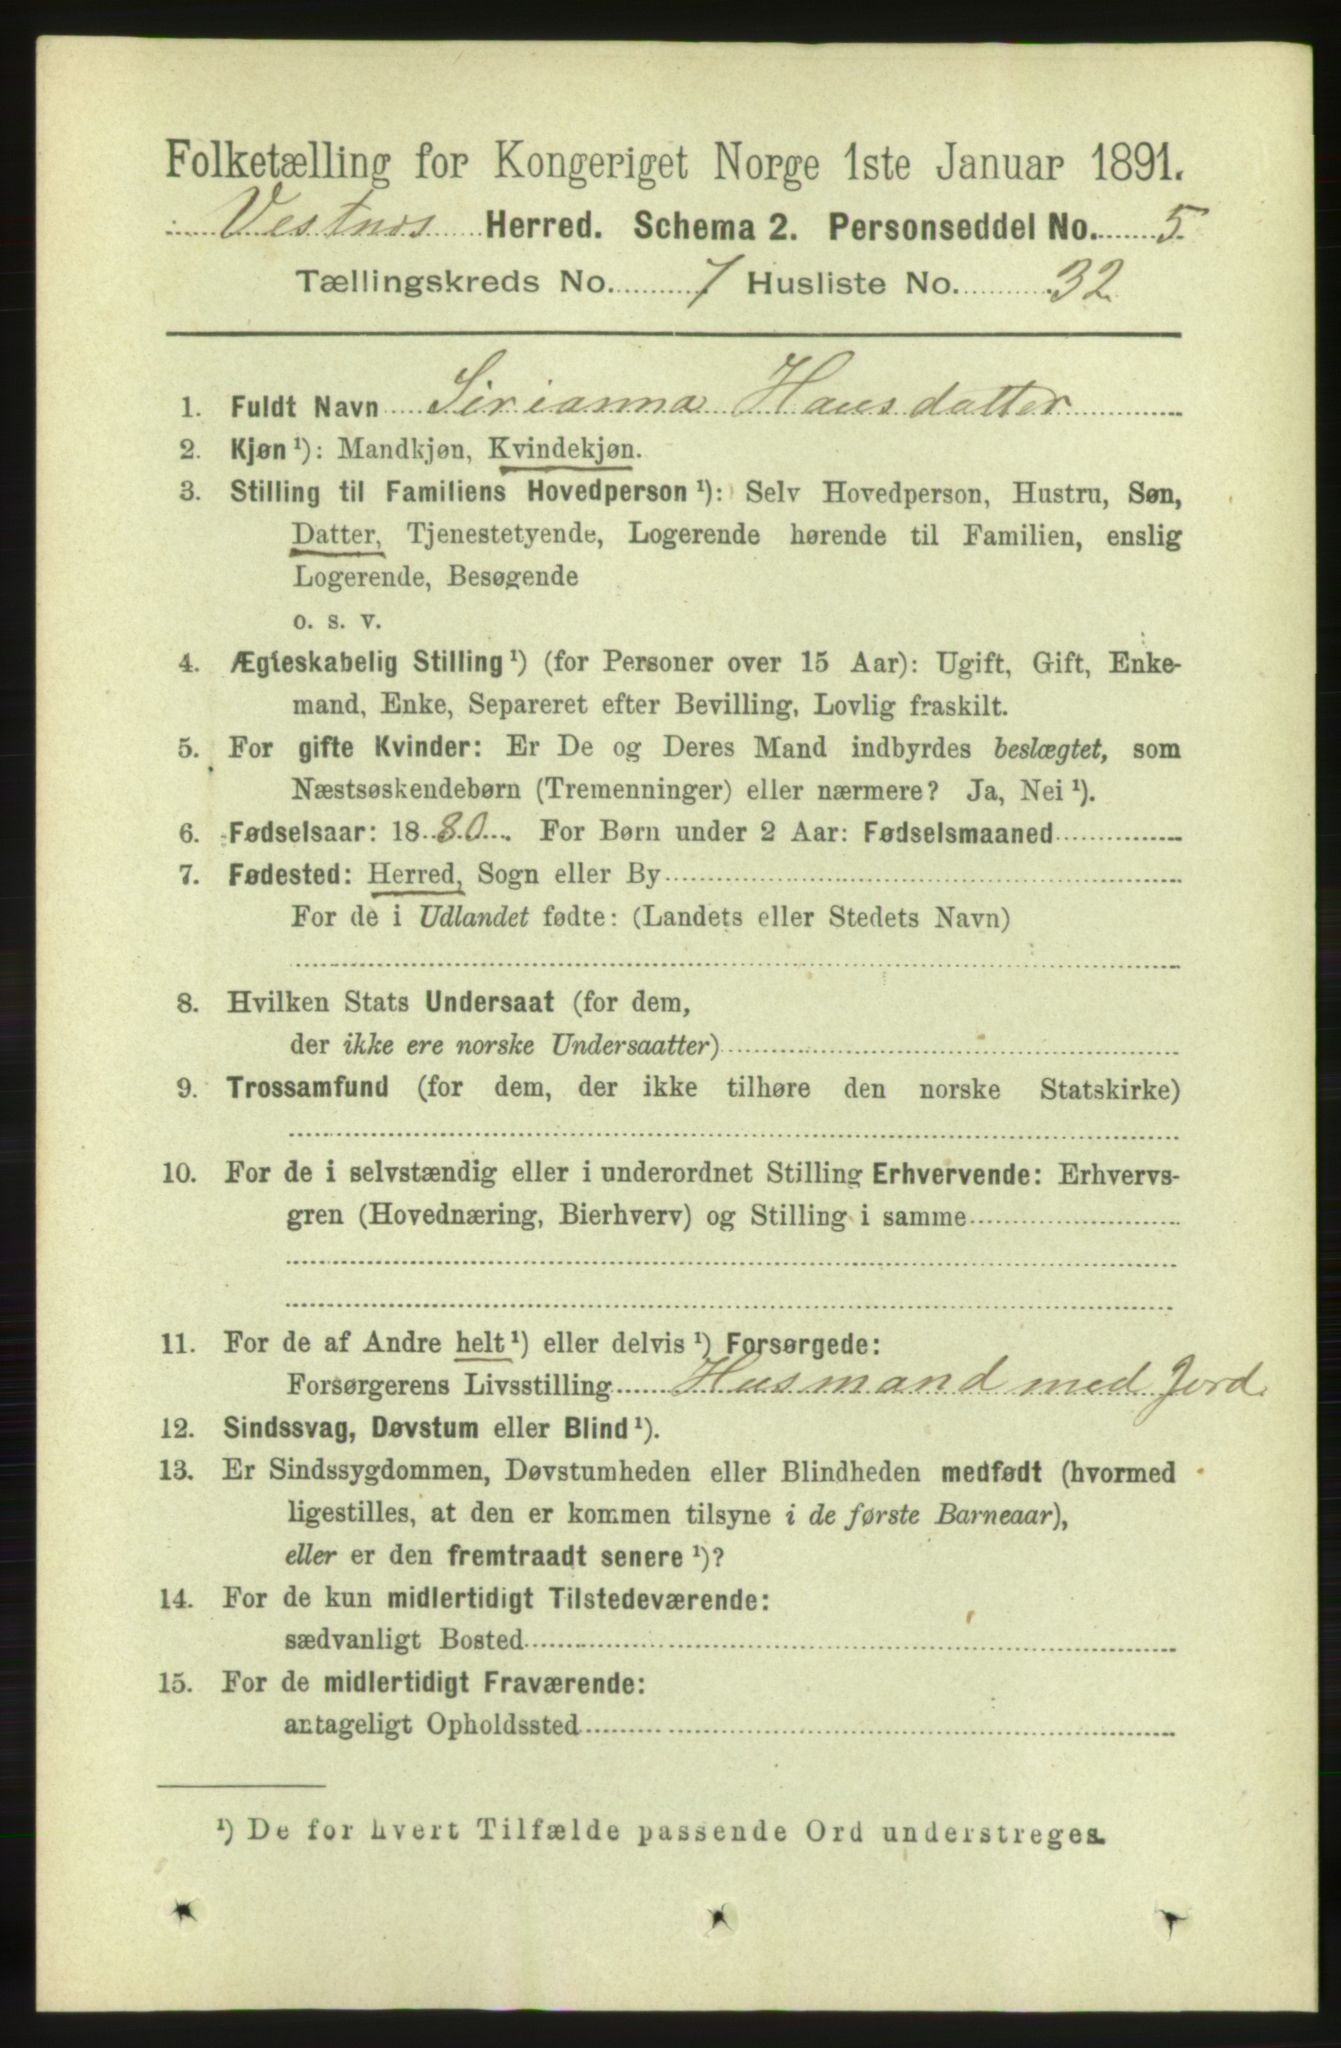 Folketælling for Kongeriget Norge 1ste Januar 1891.
Vestnes Herred. Schema 2. Personseddel No. 5.
Tællingskreds No. 7 Husliste No. 32.
1. Fuldt Navn Sirianna Hansdatter
2. Kjøn ¹): Mandkjøn, Kvindekjøn.
3. Stilling til Familiens Hovedperson ¹): Selv Hovedperson, Hustru, Søn,
Datter, Tjenestetyende, Logerende hørende til Familien, enslig
Logerende, Besøgende
o. s. v.
4. Ægteskabelig Stilling ¹) (for Personer over 15 Aar): Ugift, Gift, Enke-
mand, Enke, Separeret efter Bevilling, Lovlig fraskilt.
5. For gifte Kvinder: Er De og Deres Mand indbyrdes beslægtet, som
Næstsøskendebørn (Tremenninger) eller nærmere? Ja, Nei ¹).
6. Fødselsaar: 1880. For Børn under 2 Aar: Fødselsmaaned
7. Fødested: Herred, Sogn eller By
For de i Udlandet fødte: (Landets eller Stedets Navn)
8. Hvilken Stats Undersaat (for dem,
der ikke ere norske Undersaatter)
9. Trossamfund (for dem, der ikke tilhøre den norske Statskirke)
10. For de i selvstændig eller i underordnet Stilling Erhvervende: Erhvervs-
gren (Hovednæring, Bierhverv) og Stilling i samme
11. For de af Andre helt ¹) eller delvis ¹) Forsørgede:
Forsørgerens Livsstilling Husmand med Jord.
12. Sindssvag, Døvstum eller Blind ¹).
13. Er Sindssygdommen, Døvstumheden eller Blindheden medfødt (hvormed
ligestilles, at den er kommen tilsyne i de første Barneaar),
eller er den fremtraadt senere ¹)?
14. For de kun midlertidigt Tilstedeværende:
sædvanligt Bosted
15. For de midlertidigt Fraværende:
antageligt Opholdssted
¹) De for hvert Tilfælde passende Ord understreges.